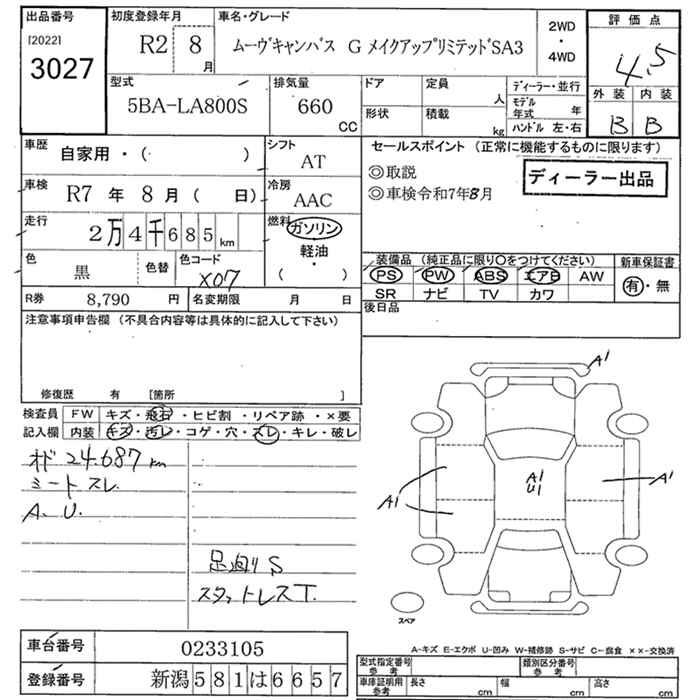 出品番号
[2022]
3027
初度登録年月
R2 8
月
車名・グレード
ムーヴキャンバス G メイクアップリミテッドSA3
2WD
・
4WD
評価点
4.5
外装 内装
B B
型式
5BA-LA800S
排気量
660
CC
ドア
定員
人
形状
積載
kg
ディーラー・並行
モデル年式 年
ハンドル 左・右
車歴
自家用・( )
シフト
AT
車検
R7 年 8 月 ( 日)
冷房
AAC
走行
2万4千685km
燃料
ガソリン
軽油
・
( )
色
黒
色替
色コード
X07
R券 8,790 円
名変期限 月 日
セールスポイント (正常に機能するものに限ります)
◎取説
◎車検令和7年8月
ディーラー出品
装備品 (純正品に限り○をつけてください)
PS PW ABS エアB AW
SR ナビ TV カワ
新車保証書
有・無
後日品
注意事項申告欄 (不具合内容等は具体的に記入して下さい)
修復歴 有 [箇所 ]
検査員 FW キズ・飛石・ヒビ割・リペア跡・×要
記入欄 内装 キズ・汚レ・コゲ・穴・スレ・キレ・破レ
オド 24.687 km
シート スレ
A. U.
足廻り S
スタットレス T.
A1
A1
U1
A1
A1
スペア
A-キズ E-エクボ U-凹み W-補修跡 S-サビ C-腐食 ××-交換済
車台番号 0233105
登録番号 新潟581は6657
型式指定番号
参考
類別区分番号
参考
車庫証明用
参考
長さ cm
幅 cm
高さ cm